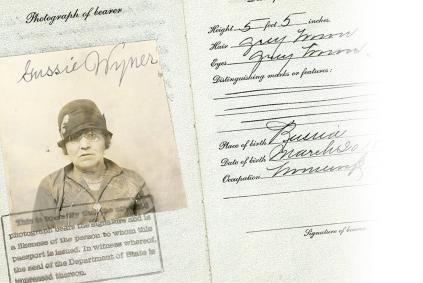 Photograph of bearer
Gussie Wyner
This is to certify that the
photograph bears the signature and is
a likeness of the person to whom this
passport is issued. In witness whereof,
the seal of the Department of State is
impressed thereon.
Height 5 feet 5 inches
Hair grey brown
Eyes grey brown
Distinguishing marks or features:
Place of birth Russia
Date of birth March
Occupation
Signature of bearer